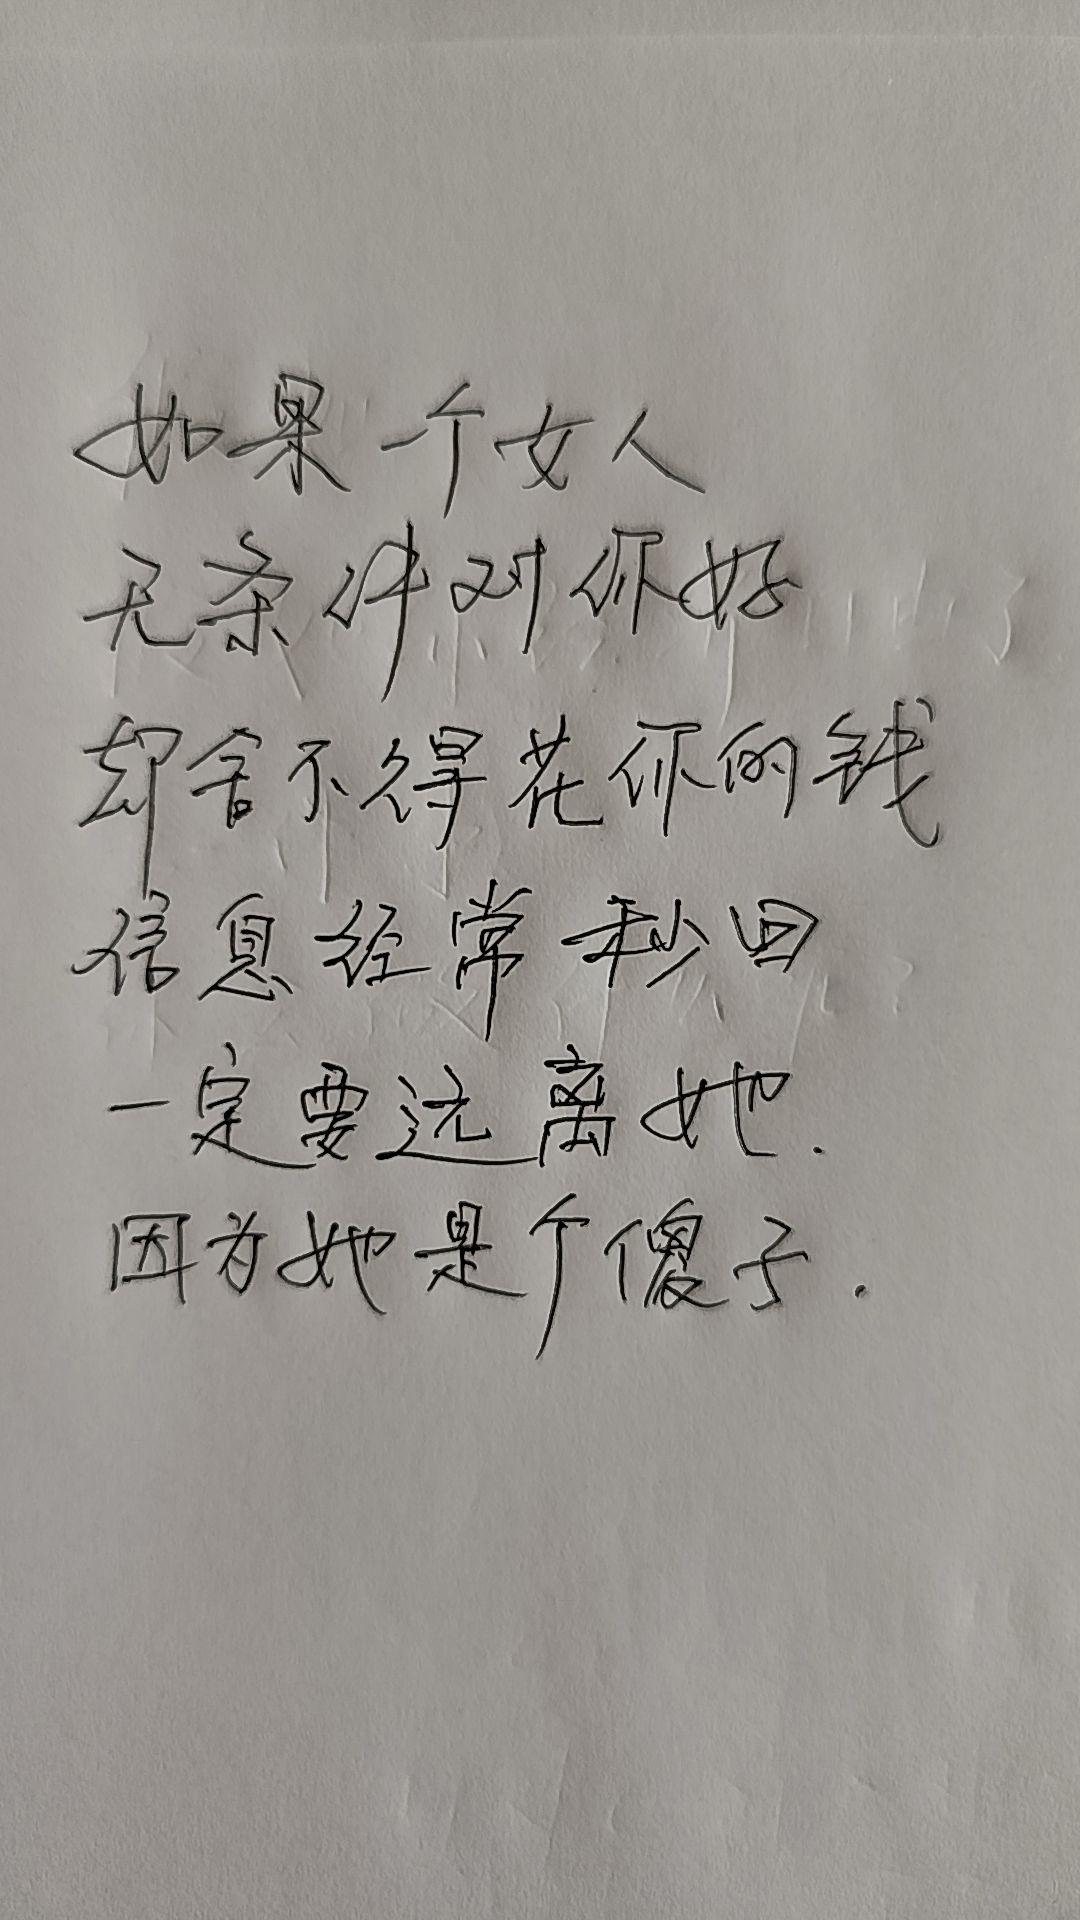 如果一个女人
无条件对你好
却舍不得花你的钱
信息经常秒回
一定要远离她.
因为她是个傻子.